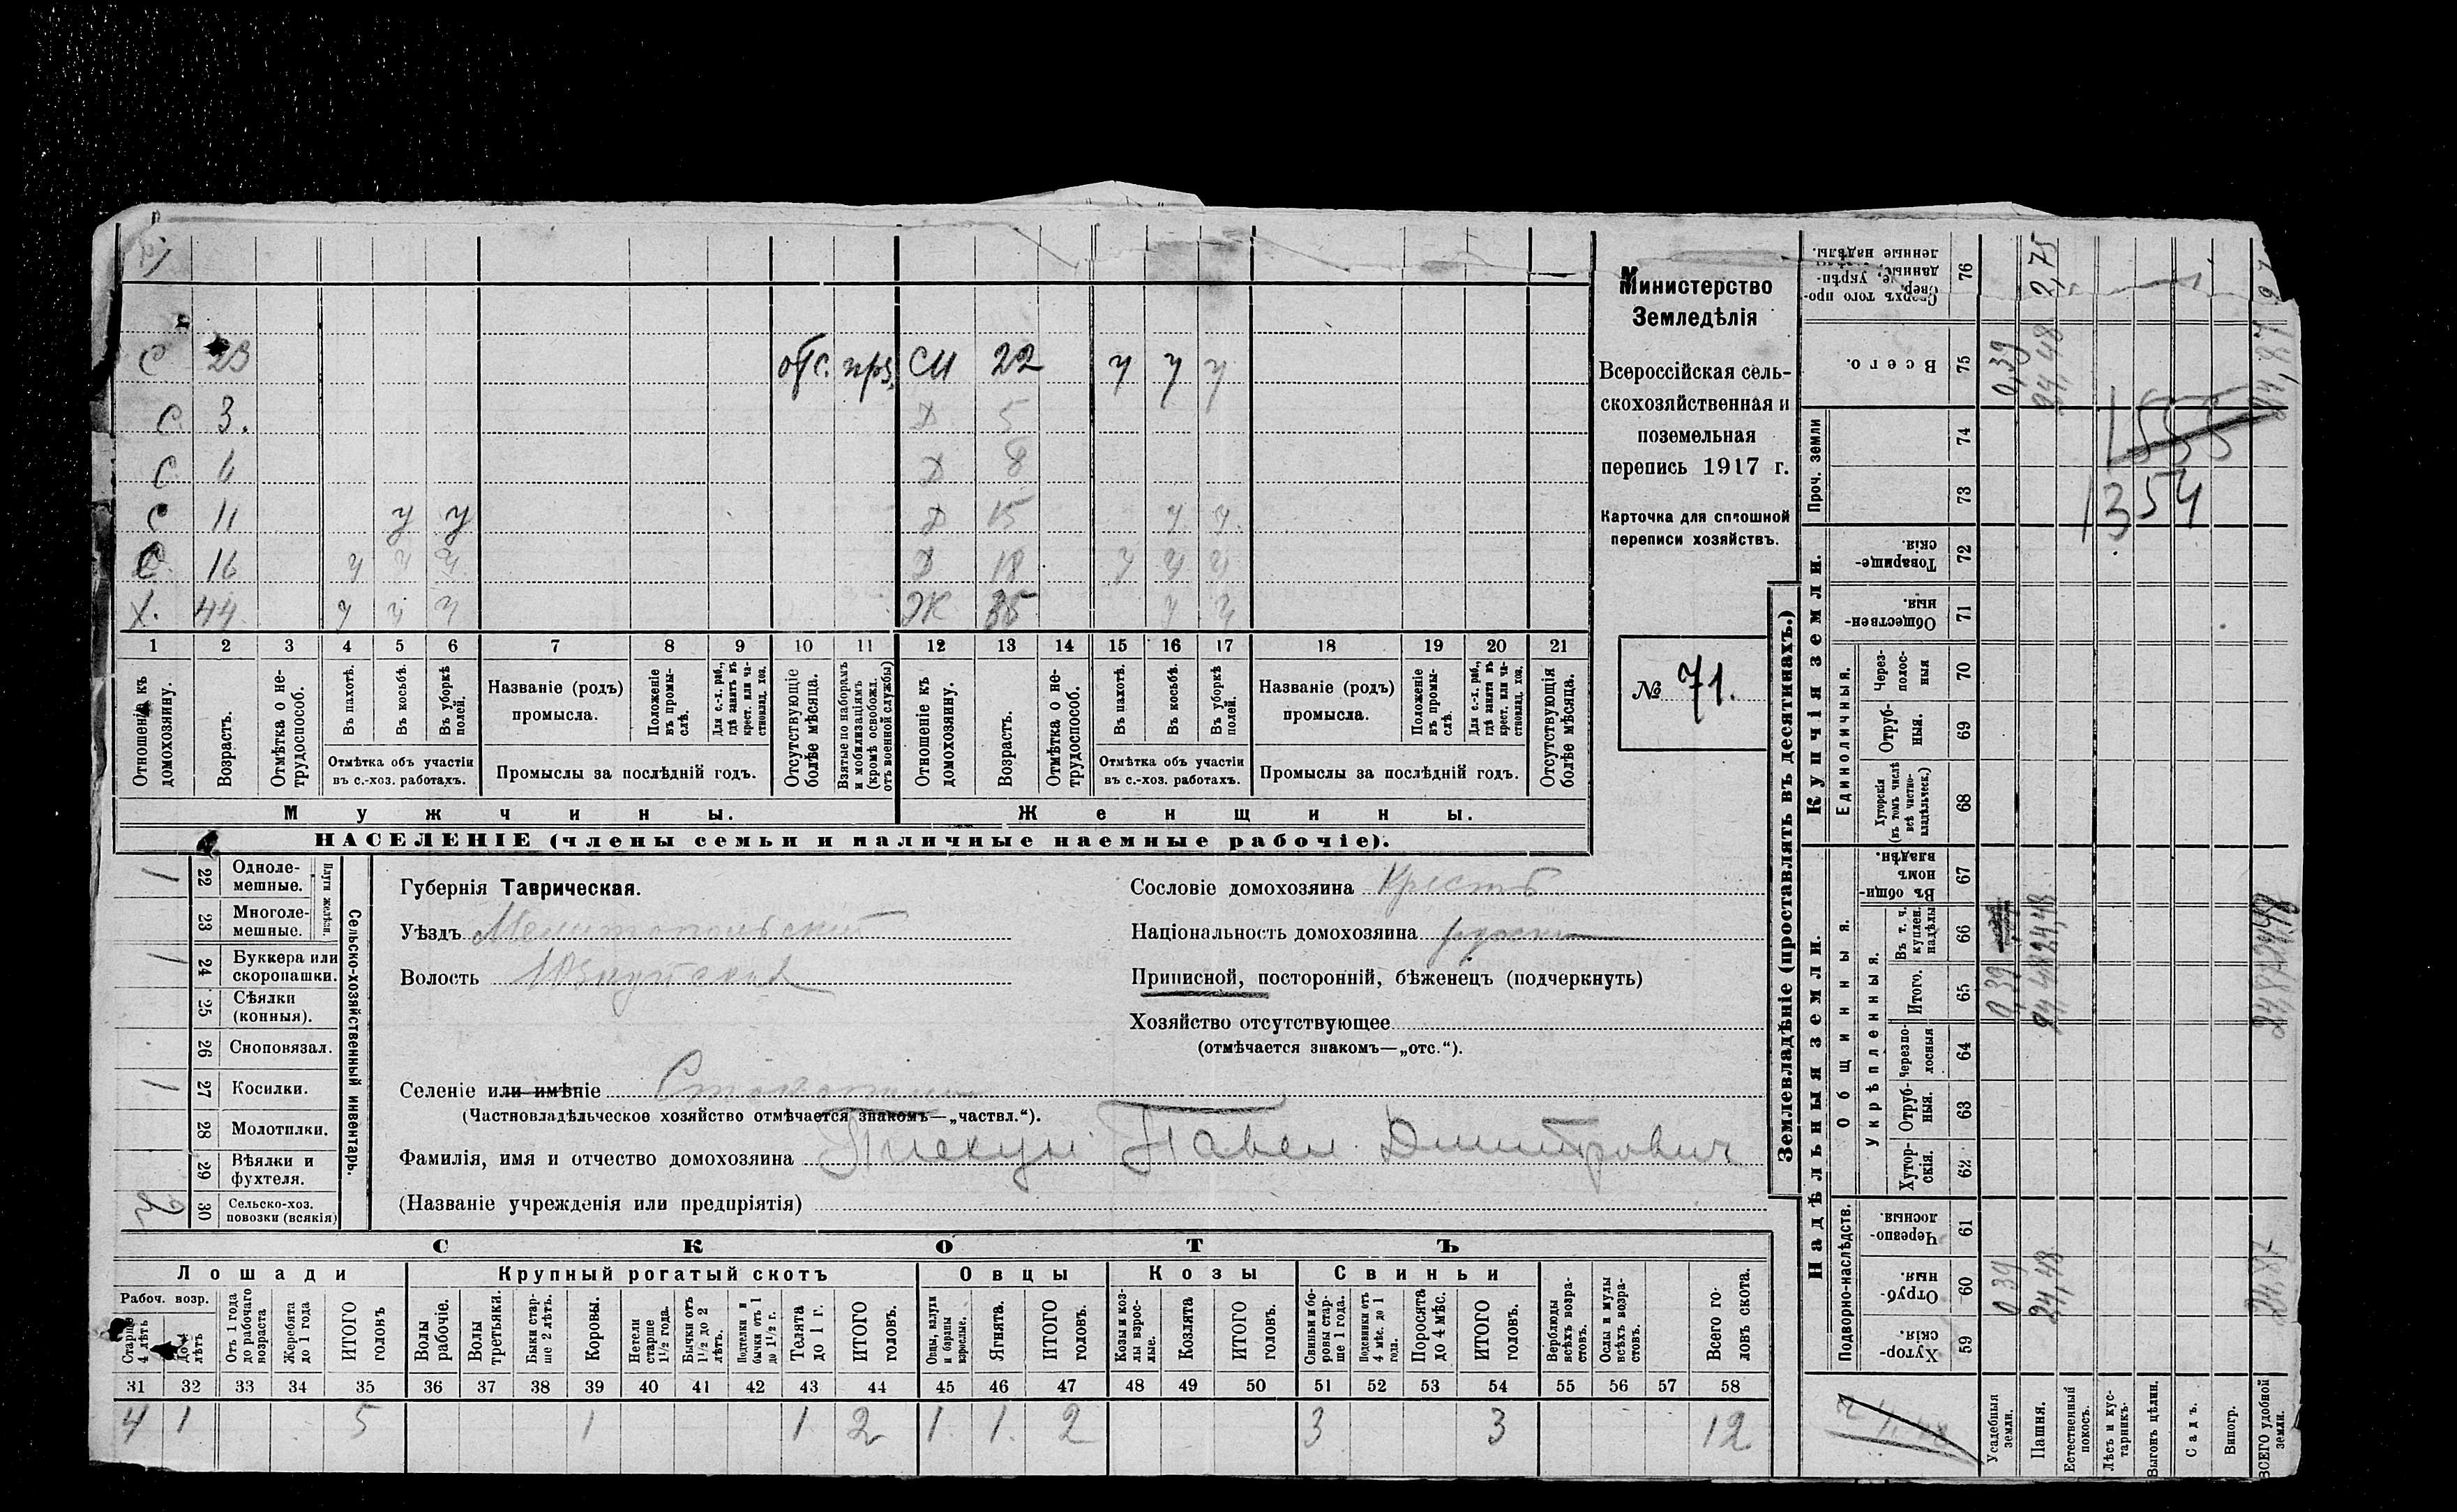 С 23 отс. прз. СН 22 у у у
С 3. Д 5
С 6 Д 8
С 11 у у Д 15 у у
С 16 у у у Д 18 у у у
Х. 44 у у у Ж 35 у у
1 2 3 4 5 6 7 8 9 10 11 12 13 14 15 16 17 18 19 20 21
Отношеніе къ домохозяину.
Возрастъ.
Отмѣтка о не-трудоспособ.
Въ пахотѣ.
Въ косьбѣ.
Въ уборкѣ полей.
Отмѣтка объ участіи
въ с.-хоз. работахъ.
Названіе (родъ)
промысла.
Положеніе въ промы-слѣ.
Для с.-х. раб., гдѣ занятъ въ крест. или ча-стновлад. хоз.
Промыслы за послѣдній годъ.
Отсутствующіе болѣе мѣсяца.
Взятые по наборамъ и мобилизаціямъ (кромѣ освобожд. отъ военной службы)
Отношеніе къ домохозяину.
Возрастъ.
Отмѣтка о не-трудоспособ.
Въ пахотѣ.
Въ косьбѣ.
Въ уборкѣ полей.
Отмѣтка объ участіи
въ с.-хоз. работахъ.
Названіе (родъ)
промысла.
Положеніе въ промы-слѣ.
Для с.-х. раб., гдѣ занята въ крест. или ча-стновлад. хоз.
Промыслы за послѣдній годъ.
Отсутствующія болѣе мѣсяца.
Мужчины.
Женщины.
НАСЕЛЕНІЕ (члены семьи и наличные наемные рабочіе).
Министерство
Земледѣлія
Всероссійская сель-
скохозяйственная и
поземельная
перепись 1917 г.
Карточка для сплошной
переписи хозяйствъ.
№ 71.
Сельско-хозяйственный инвентарь.
Плуги желѣзн.
1 22 Одноле-мешные.
23 Многоле-мешные.
1 24 Буккера или скоропашки.
25 Сѣялки (конныя).
26 Сноповязал.
1 27 Косилки.
28 Молотилки.
29 Вѣялки и фухтеля.
2 30 Сельско-хоз. повозки (всякія)
Губернія Таврическая.
Уѣздъ Мелитопольскій
Волость
Сословіе домохозяина Крестъ
Національность домохозяина русскій
Приписной, посторонній, бѣженецъ (подчеркнуть)
Хозяйство отсутствующее
(отмѣчается знакомъ—„отс.“).
Селеніе или имѣніе
(Частновладѣльческое хозяйство отмѣчается знакомъ—„частвл.“).
Фамилія, имя и отчество домохозяина Пискун Павел Дмитрович
(Названіе учрежденія или предпріятія)
СКОТЪ
Лошади Крупный рогатый скотъ Овцы Козы Свиньи
Рабоч. возр.
Старше 4 лѣтъ
До 4 лѣтъ
Отъ 1 года до рабочаго возраста
Жеребята до 1 года
ИТОГО головъ
Волы рабочіе.
Волы третьяки.
Быки стар-ше 2 лѣтъ.
Коровы.
Нетели старше 1½ года.
Бычки отъ 1½ до 2 лѣтъ.
Подтелки и бычки отъ 1 до 1½ г.
Телята до 1 г.
ИТОГО головъ.
Овцы, валухи и бараны взрослые.
Ягнята.
ИТОГО головъ.
Козы и коз-лы взрос-лые.
Козлята
ИТОГО головъ.
Свиньи и бо-ровы стар-ше 1 года.
Подсвинки отъ 4 мѣс. до 1 года.
Поросята до 4 мѣс.
ИТОГО головъ.
Верблюды всѣхъ возра-стовъ.
Ослы и мулы всѣхъ возра-стовъ.
Всего го-ловъ скота.
31 32 33 34 35 36 37 38 39 40 41 42 43 44 45 46 47 48 49 50 51 52 53 54 55 56 57 58
4 1 5 1 1 2 1 1 2 3 3 12
Землевладѣніе (проставлять въ десятинахъ.)
Надѣльныя земли.
Купчія земли.
Проч. земли
Подворно-наслѣдств.
Общинныя.
Укрѣпленныя.
Единоличныя.
76 Сверхъ того про-данные, укрѣп-ленные надѣлы. 2,75
75 Всего. 0,39 24,48
74 1555
73 1354
72 Товарище-скія.
71 Обществен-ныя.
70 Через-полос-ныя
69 Отруб-ныя.
68 Хуторскія (въ томъ числѣ всѣ частно-владѣльческ.)
67 Въ общин-номъ владѣн.
66 Въ т. ч. куплен. надѣлы 24,48
65 Итого. 0,39 24,48
64 Черезпо-лосныя
63 Отруб-ныя.
62 Хутор-скія.
61 Черезпо-лосныя
60 Отруб-ныя. 0,39 24,48 24,87
59 Хутор-скія
Усадебныя земли.
Пашня.
Естественный покосъ.
Лѣсъ и кус-тарникъ.
Выгонъ цѣлин.
Садъ.
Виногр.
ВСЕГО удобной земли.